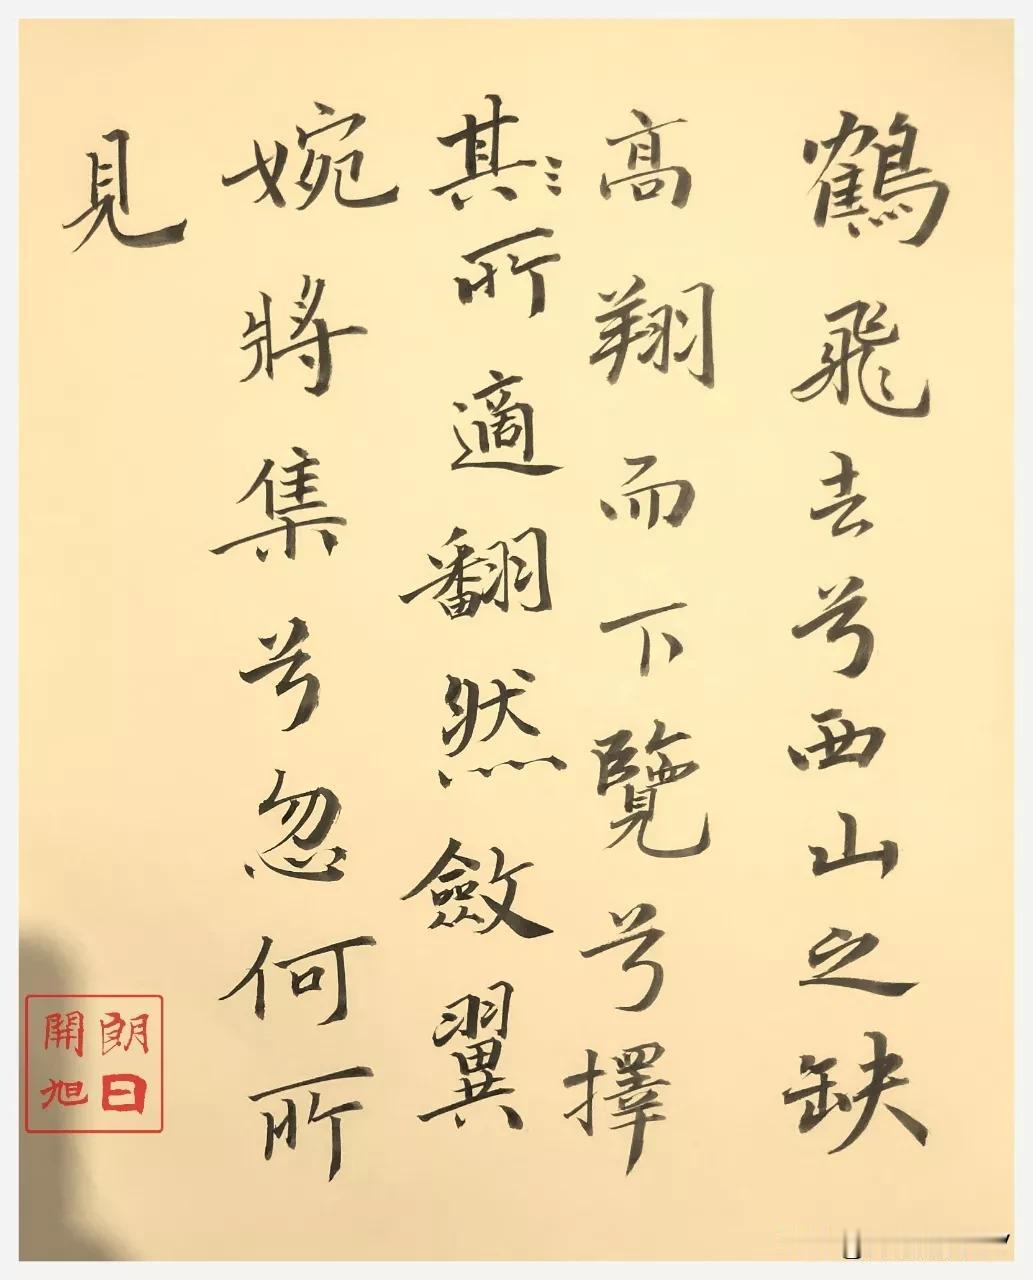 鶴飛去兮西山之缺
高翔而下覽兮擇
其所適翻然斂翼
婉將集兮忽何所
見
朗日
開旭